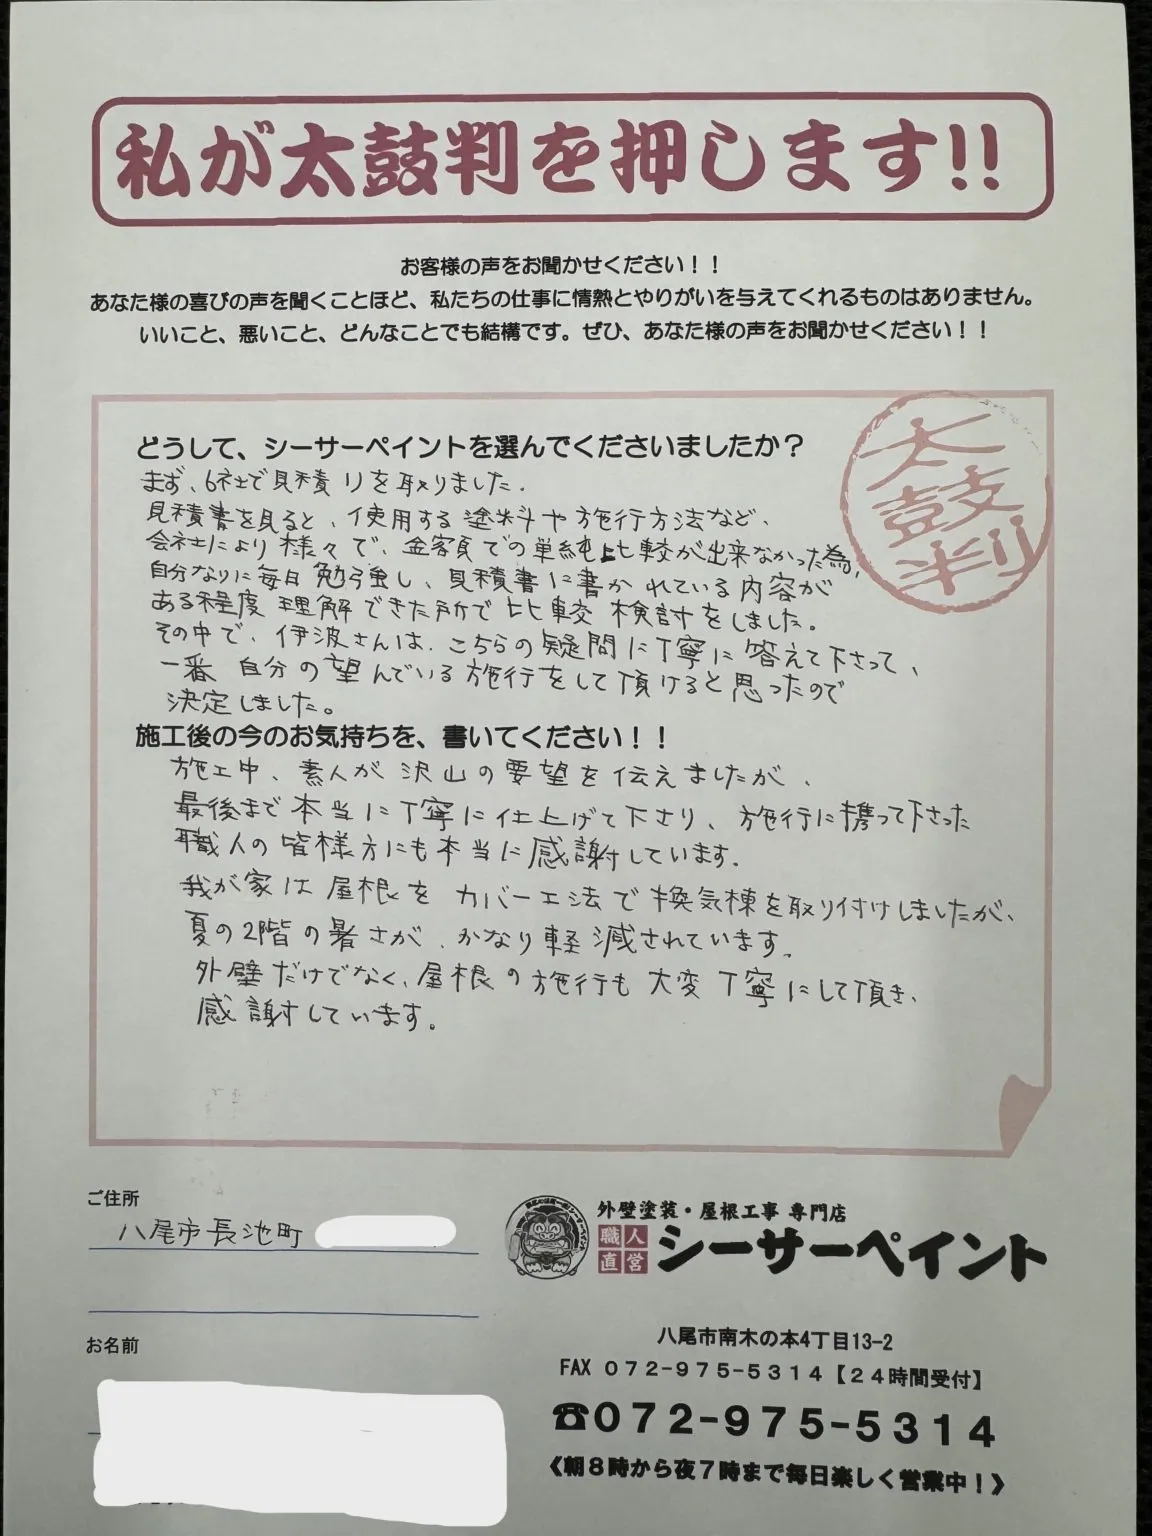 私が太鼓判を押します!!
お客様の声をお聞かせください！！
あなた様の喜びの声を聞くことほど、私たちの仕事に情熱とやりがいを与えてくれるものはありません。
いいこと、悪いこと、どんなことでも結構です。ぜひ、あなた様の声をお聞かせください！！
太鼓判
どうして、シーサーペイントを選んでくださいましたか？
まず、6社で見積りを取りました。
見積書を見ると、使用する塗料や施行方法など、
会社により様々で、金額での単純比較が出来なかった為、
自分なりに毎日勉強し、見積書に書かれている内容が
ある程度理解できた所で比較検討をしました。
その中で、伊波さんは、こちらの疑問に丁寧に答えて下さって、
一番自分の望んでいる施行をして頂けると思ったので
決定しました。
施工後の今のお気持ちを、書いてください！！
施工中、素人が沢山の要望を伝えましたが、
最後まで本当に丁寧に仕上げて下さり、施行に携って下さった
職人の皆様方にも本当に感謝しています。
我が家は屋根をカバー工法で換気棟を取り付けしましたが、
夏の2階の暑さが、かなり軽減されています。
外壁だけでなく、屋根の施行も大変丁寧にして頂き、
感謝しています。
ご住所
八尾市長池町
お名前
外壁塗装・屋根工事 専門店
職人直営 シーサーペイント
八尾市南木の本4丁目13-2
FAX 072-975-5314【24時間受付】
☎072-975-5314
《朝8時から夜7時まで毎日楽しく営業中！》